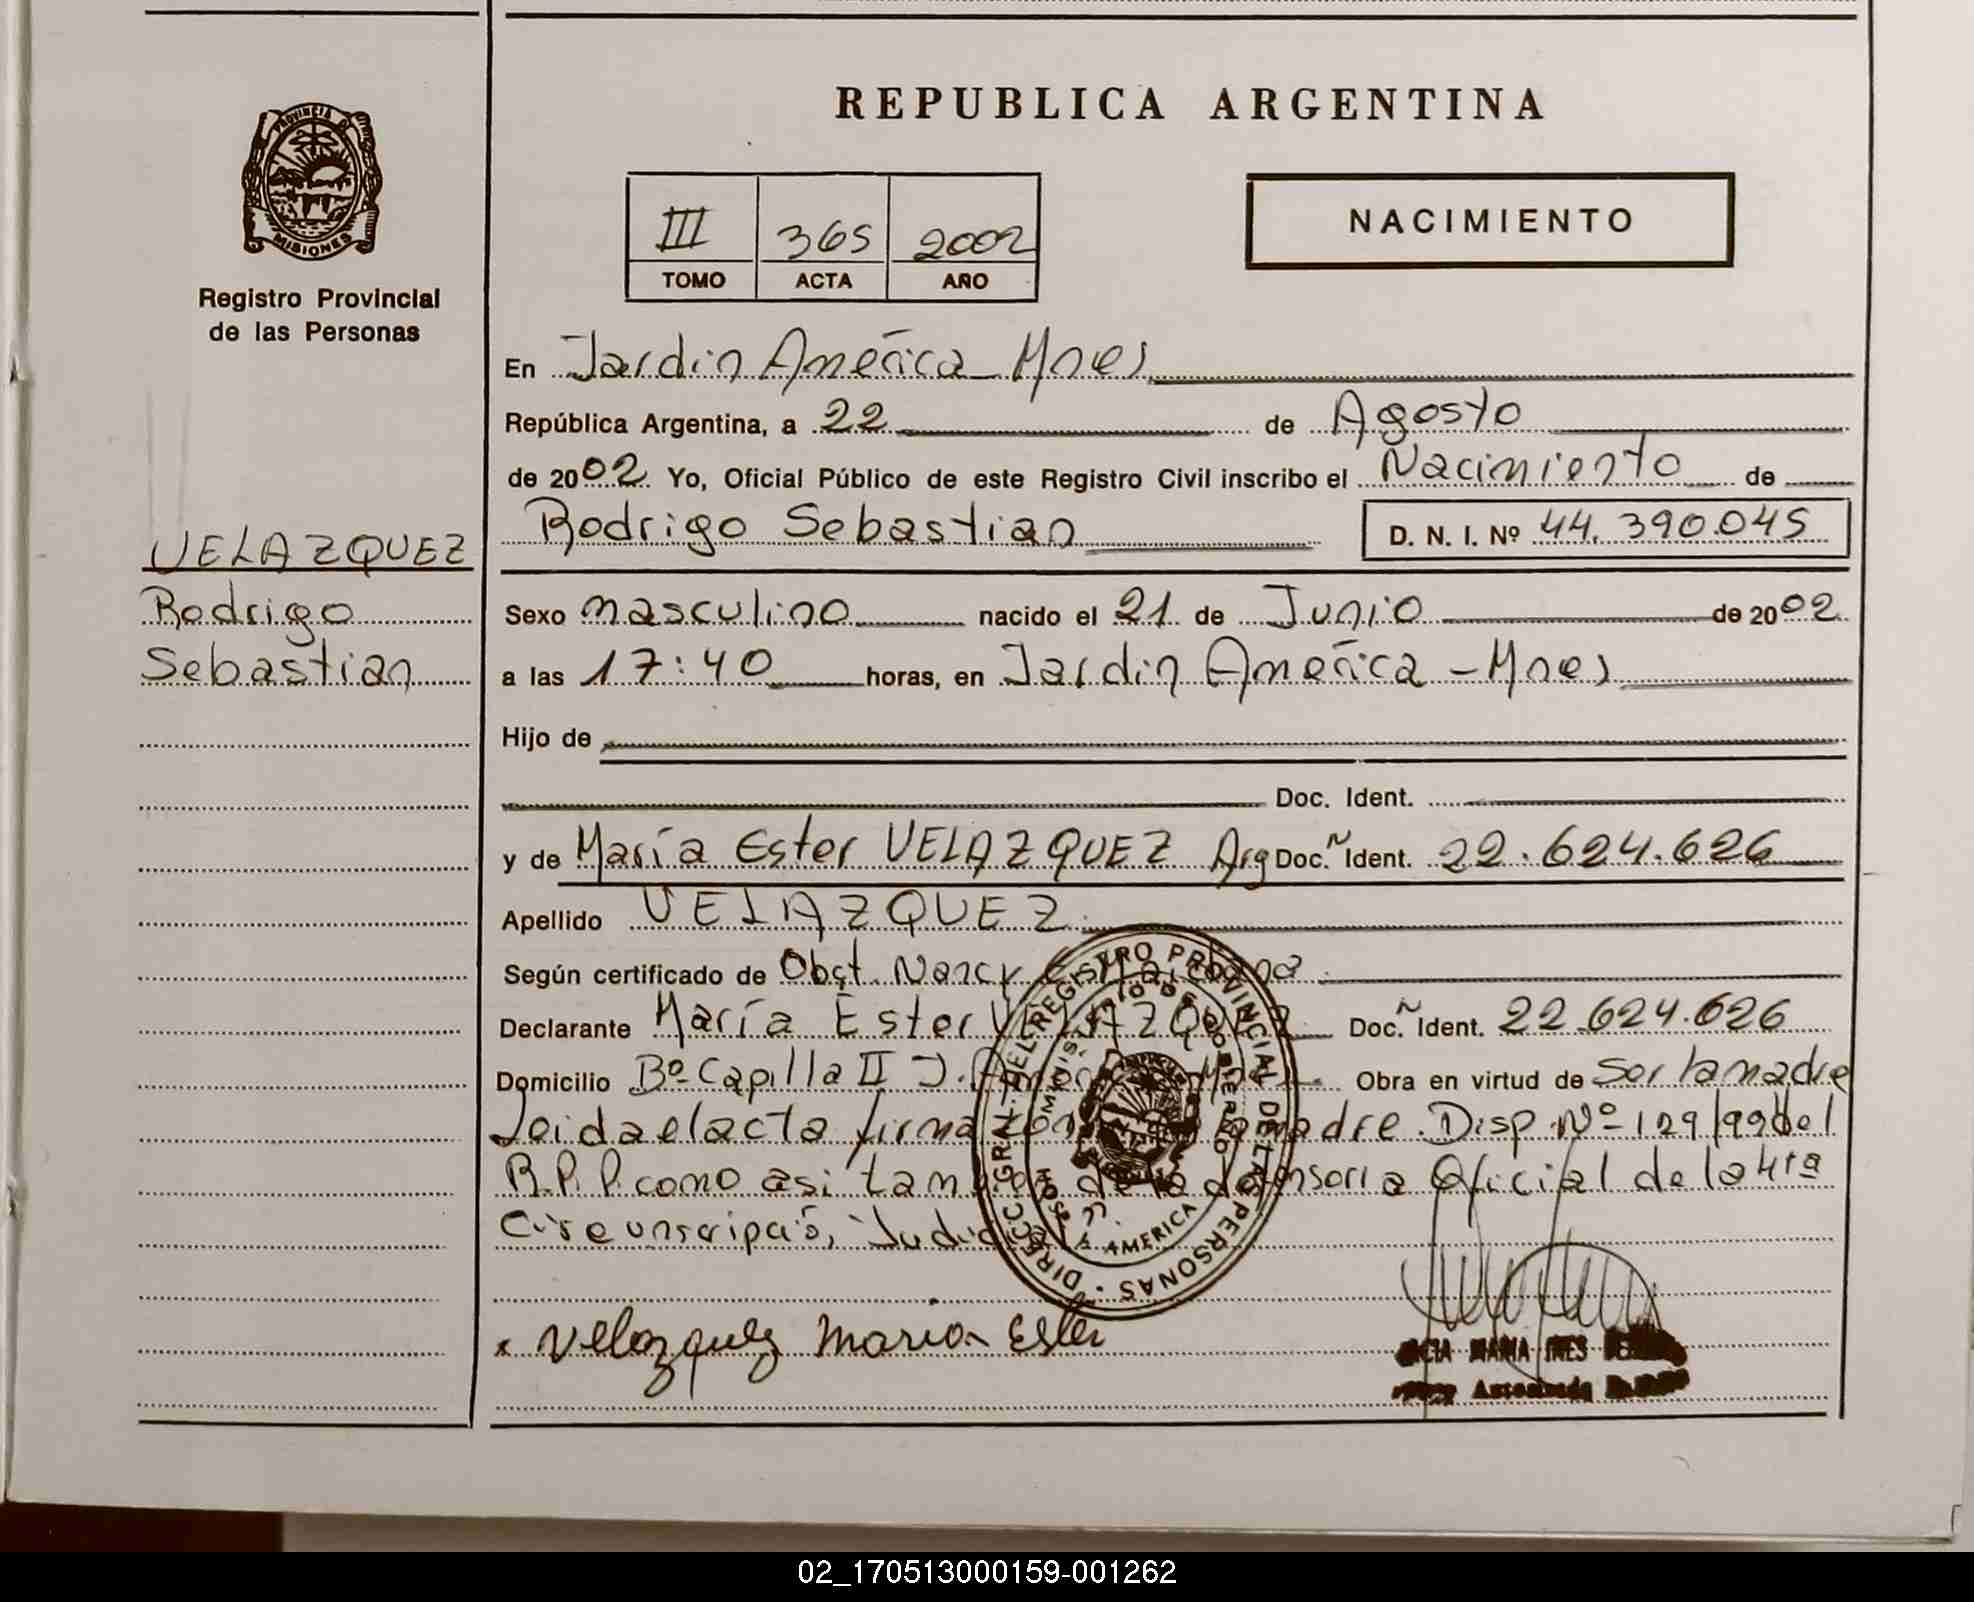 REPUBLICA ARGENTINA
PROVINCIA D MISIONES
Registro Provincial
de las Personas
III 365 2002
TOMO ACTA AÑO
NACIMIENTO
En Jardin América - Mnes
República Argentina, a 22 de Agosto
de 2002. Yo, Oficial Público de este Registro Civil inscribo el Nacimiento de
Rodrigo Sebastian D. N. I. Nº 44.390.045
VELAZQUEZ
Rodrigo
Sebastian
Sexo masculino nacido el 21 de Junio de 2002
a las 17:40 horas, en Jardin América - Mnes
Hijo de
Doc. Ident.
y de María Ester VELAZQUEZ Arg Doc. Ident. 22.624.626
Apellido VELAZQUEZ
Según certificado de Obst. Nancy
Declarante María Ester VELAZQUEZ Doc. Ident. 22.624.626
Domicilio Bº Capilla II J. Obra en virtud de Ser la madre
Leida el acta firma madre. Disp. Nº 129/99 del
R.P.P. como asi de la Oficial de la 4ta
DIRECC. GRAL. DEL REGISTRO PROVINCIAL DE LAS PERSONAS
MINISTERIO DE GOBIERNO
AMERICA
x Velazquez Maria Ester
MARIA INES
02_170513000159-001262